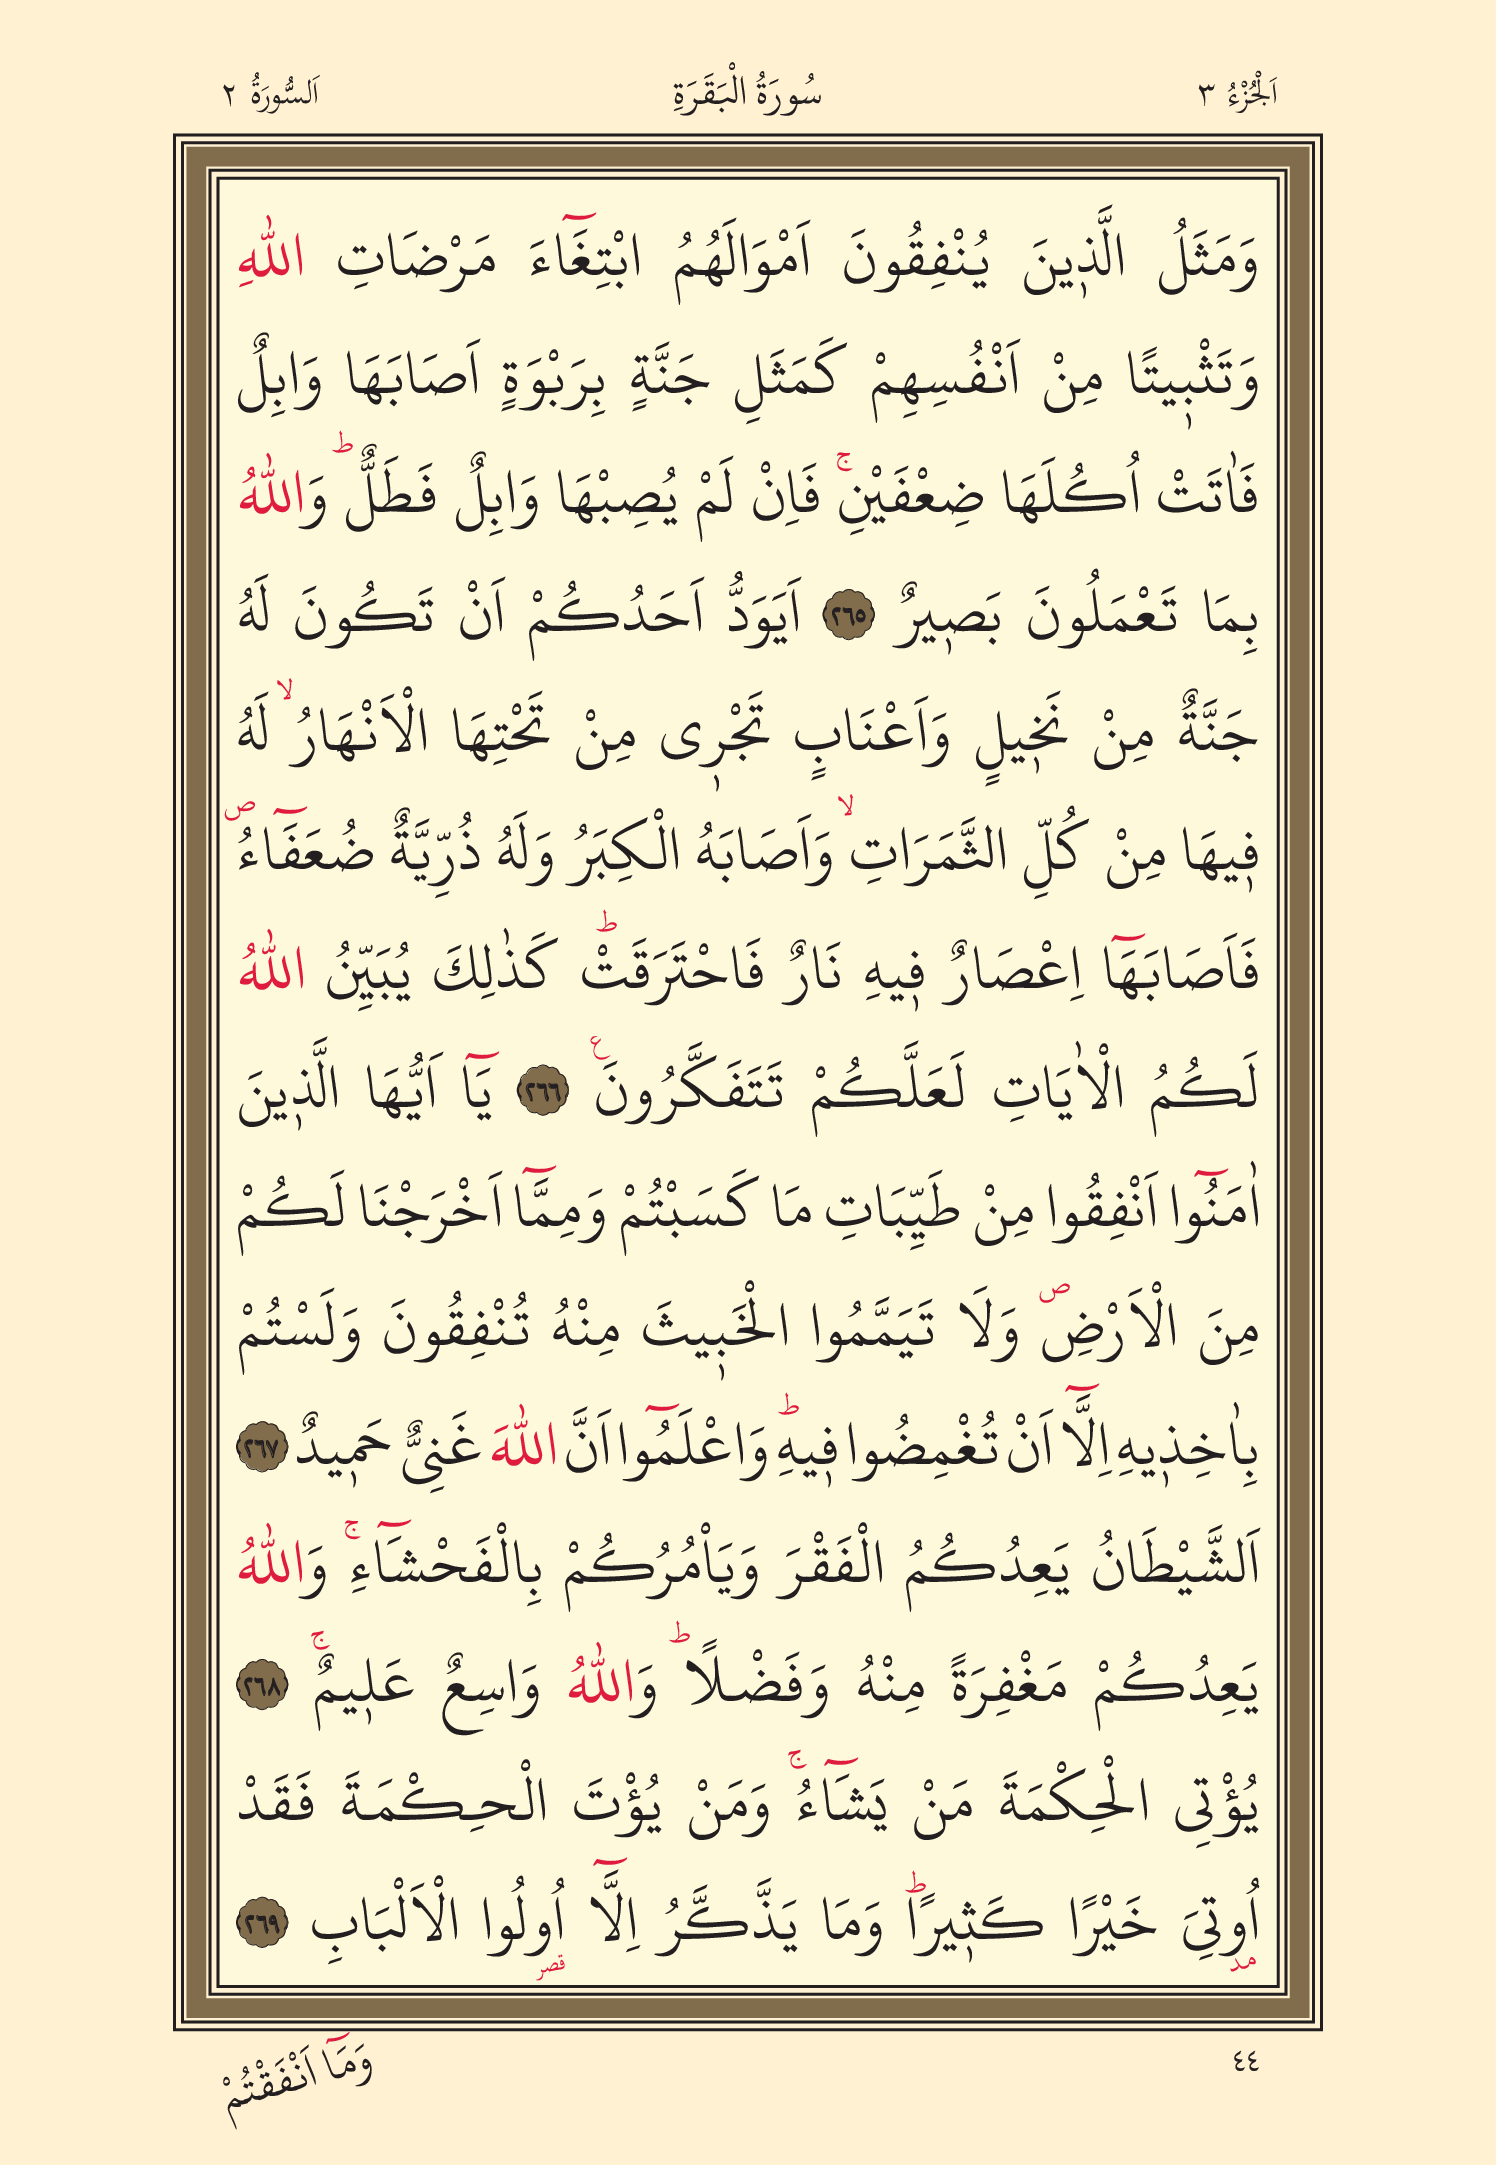 اَلْجُزْءُ ٣
سُورَةُ الْبَقَرَةِ
اَلسُّورَةُ ٢
وَمَثَلُ الَّذ۪ينَ يُنْفِقُونَ اَمْوَالَهُمُ ابْتِغَٓاءَ مَرْضَاتِ اللّٰهِ
وَتَثْب۪يتًا مِنْ اَنْفُسِهِمْ كَمَثَلِ جَنَّةٍ بِرَبْوَةٍ اَصَابَهَا وَابِلٌ
فَاٰتَتْ اُكُلَهَا ضِعْفَيْنِۚ فَاِنْ لَمْ يُصِبْهَا وَابِلٌ فَطَلٌّؕ وَاللّٰهُ
بِمَا تَعْمَلُونَ بَص۪يرٌ ﴿٢٦٥﴾ اَيَوَدُّ اَحَدُكُمْ اَنْ تَكُونَ لَهُ
جَنَّةٌ مِنْ نَخ۪يلٍ وَاَعْنَابٍ تَجْر۪ى مِنْ تَحْتِهَا الْاَنْهَارُۙ لَهُ
ف۪يهَا مِنْ كُلِّ الثَّمَرَاتِۙ وَاَصَابَهُ الْكِبَرُ وَلَهُ ذُرِّيَّةٌ ضُعَفَٓاءُۖ ص
فَاَصَابَهَٓا اِعْصَارٌ ف۪يهِ نَارٌ فَاحْتَرَقَتْؕ كَذٰلِكَ يُبَيِّنُ اللّٰهُ
لَكُمُ الْاٰيَاتِ لَعَلَّكُمْ تَتَفَكَّرُونَ ع ﴿٢٦٦﴾ يَٓا اَيُّهَا الَّذ۪ينَ
اٰمَنُٓوا اَنْفِقُوا مِنْ طَيِّبَاتِ مَا كَسَبْتُمْ وَمِمَّٓا اَخْرَجْنَا لَكُمْ
مِنَ الْاَرْضِ ص وَلَا تَيَمَّمُوا الْخَب۪يثَ مِنْهُ تُنْفِقُونَ وَلَسْتُمْ
بِاٰخِذ۪يهِ اِلَّٓا اَنْ تُغْمِضُوا ف۪يهِؕ وَاعْلَمُٓوا اَنَّ اللّٰهَ غَنِىٌّ حَم۪يدٌ ﴿٢٦٧﴾
اَلشَّيْطَانُ يَعِدُكُمُ الْفَقْرَ وَيَاْمُرُكُمْ بِالْفَحْشَٓاءِۚ وَاللّٰهُ
يَعِدُكُمْ مَغْفِرَةً مِنْهُ وَفَضْلًاؕ وَاللّٰهُ وَاسِعٌ عَل۪يمٌۚ ﴿٢٦٨﴾
يُؤْتِى الْحِكْمَةَ مَنْ يَشَٓاءُۚ وَمَنْ يُؤْتَ الْحِكْمَةَ فَقَدْ
اُو۫تِىَ خَيْرًا كَث۪يرًاؕ وَمَا يَذَّكَّرُ اِلَّٓا اُولُوا الْاَلْبَابِ ﴿٢٦٩﴾
مد قصر
٤٤
وَمَٓا اَنْفَقْتُمْ